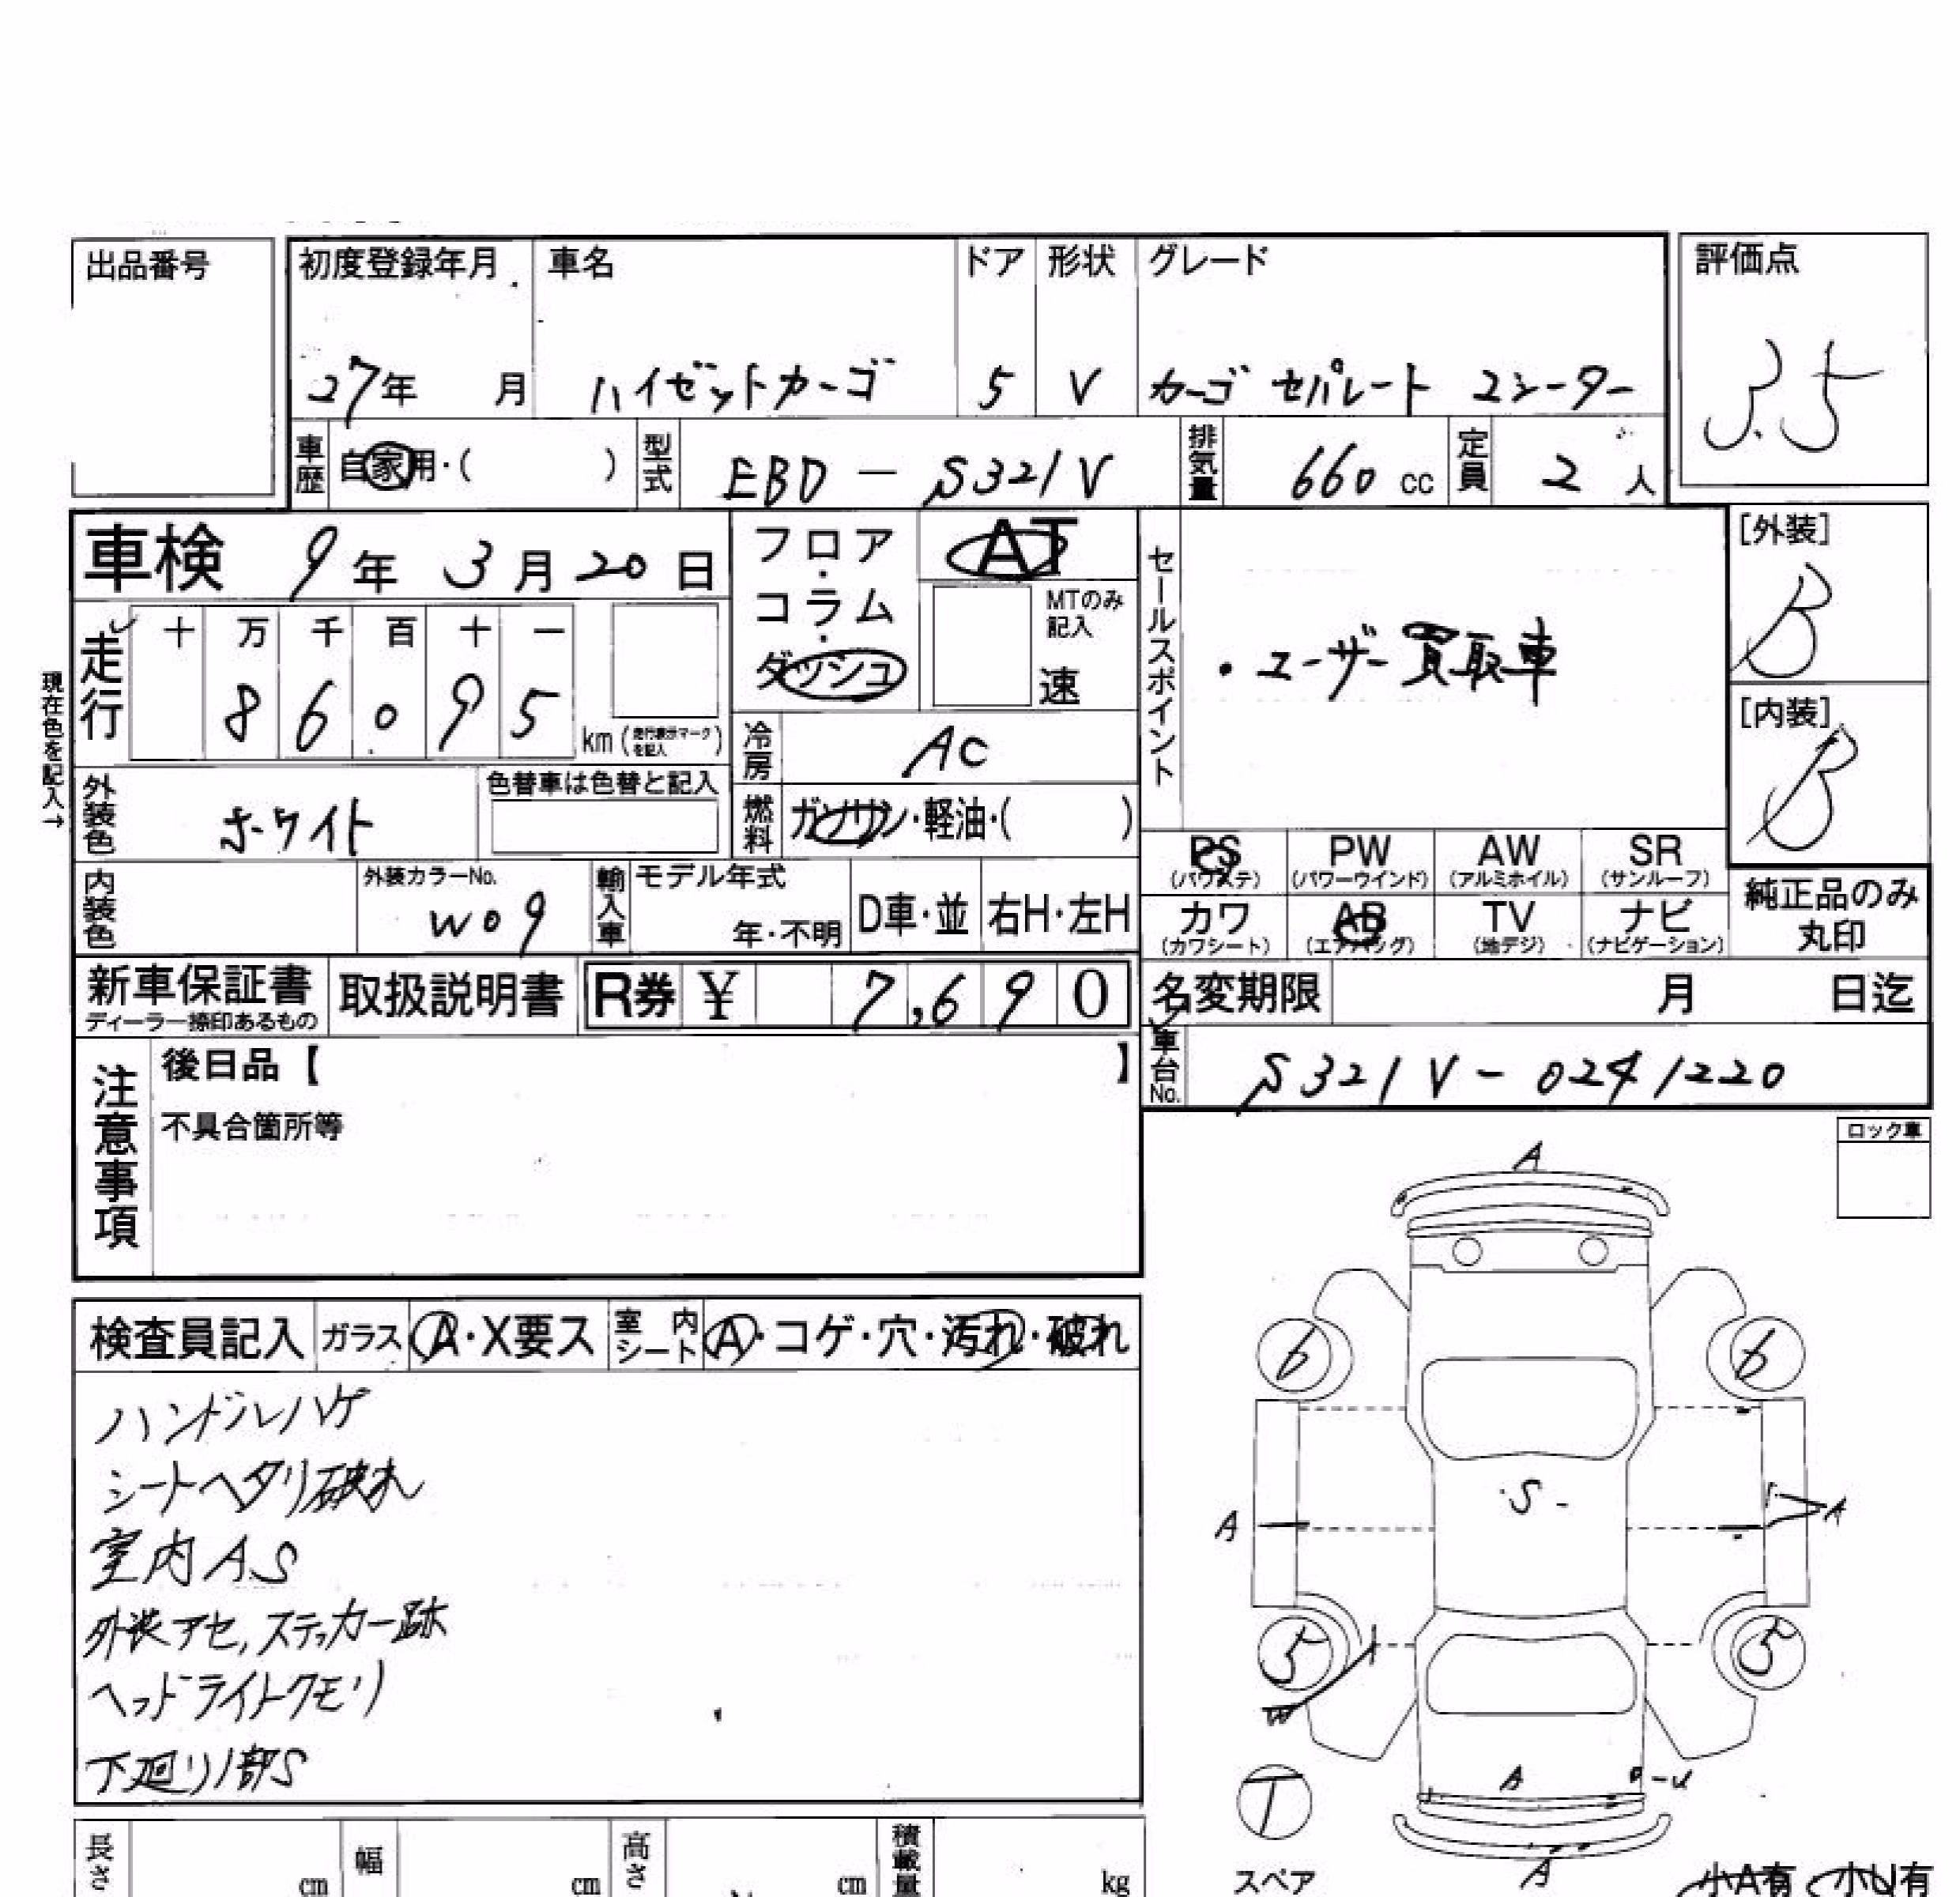 出品番号
初度登録年月 車名 ドア 形状 グレード 評価点
27年 月 ハイゼットカーゴ 5 V カーゴ セパレート 2シーター 3.5
車歴 自家用・( ) 型式 EBD-S321V 排気量 660 cc 定員 2 人
車検 9年 3月 20日 フロア・コラム・ダッシュ AT
MTのみ記入 速
セールスポイント
・ユーザー買取車
[外装] B
[内装] B
現在色を記入→
走行 十 万 千 百 十 一
8 6 0 9 5 km (走行表示マークを記入)
冷房 AC
外装色 ホワイト 色替車は色替と記入
燃料 ガソリン・軽油・( )
PS (パワステ) PW (パワーウインド) AW (アルミホイル) SR (サンルーフ)
内装色 外装カラーNo. W09 輸入車 モデル年式 年・不明 D車・並 右H・左H
カワ (カワシート) AB (エアバッグ) TV (地デジ) ナビ (ナビゲーション) 純正品のみ丸印
新車保証書 ディーラー捺印あるもの 取扱説明書 R券 ¥ 7,690 名変期限 月 日迄
車台No. S321V-0241220
注意事項 後日品【 】
不具合箇所等
ロック車
検査員記入 ガラス A・X要ス 室内シート A・コゲ・穴・汚れ・破れ
ハンドルハゲ
シートヘタリ破れ
室内A.S
外装アセ,ステッカー跡
ヘッドライトクモリ
下廻り1部S
A
6 6
S
A A
5 5
W
A U
T
スペア
A
小A有 小U有
長さ cm 幅 cm 高さ cm 積載量 kg